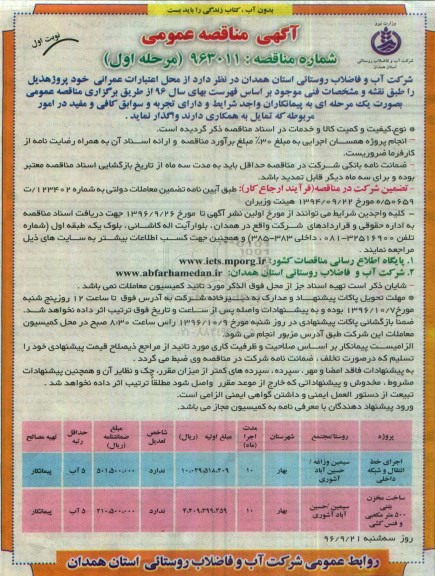 بدون آب ، کتاب زندگی را باید بست
وزارت نیرو
شرکت آب و فاضلاب روستائی
استان همدان
نوبت اول
آگهی مناقصه عمومی
شماره مناقصه : ۹۶۳۰۱۱ (مرحله اول)
شرکت آب و فاضلاب روستائی استان همدان در نظر دارد از محل اعتبارات عمرانی خود پروژهذیل
را طبق نقشه و مشخصات فنی موجود بر اساس فهرست بهای سال ۹۶ از طریق برگزاری مناقصه عمومی
بصورت یک مرحله ای به پیمانکاران واجد شرایط و دارای تجربه و سوابق کافی و مفید در امور
مربوطه که تمایل به همکاری دارند واگذار نماید.
* نوع،کیفیت و کمیت کالا و خدمات در اسناد مناقصه ذکر گردیده است.
- انجام پروژه همسان اجرایی به مبلغ ۳۰٪ مبلغ برآورد مناقصه و ارائه اسناد آن به همراه رضایت نامه از
کارفرما ضروریست.
- ضمانت نامه بانکی شرکت در مناقصه حداقل باید به مدت سه ماه از تاریخ بازگشایی اسناد مناقصه معتبر
بوده و برای سه ماه دیگر قابل تمدید باشد.
- تضمین شرکت در مناقصه(فرآیند ارجاع کار): طبق آیین نامه تضمین معاملات دولتی به شماره ۱۲۳۴۰۲/ت
۵۰۶۵۹ه مورخ ۱۳۹۴/۰۹/۲۲ هیئت وزیران
- کلیه واجدین شرایط می توانند از مورخ اولین نشر آگهی تا مورخ ۱۳۹۶/۹/۲۶ جهت دریافت اسناد مناقصه
به اداره حقوقی و قراردادهای شرکت واقع در همدان، بلوارآیت اله کاشانی، بلوک یک، طبقه اول (شماره
تلفن ۳۲۵۱۶۹۰۰-۰۸۱ داخلی ۳۸۳-۳۸۵) و همچنین جهت کسب اطلاعات بیشتر به سایت های ذیل
مراجعه نمایند.
۱. پایگاه اطلاع رسانی مناقصات کشور: www.iets.mporg.ir
۲. شرکت آب و فاضلاب روستائی استان همدان: www.abfarhamedan.ir
- شایان ذکر است تهیه اسناد جز از محل فوق الذکر مورد تائید کمیسیون معاملات نمی باشد.
* مهلت تحویل پاکات پیشنهاد و مدارک به دبیرخانه شرکت به آدرس فوق تا ساعت ۱۲ روزپنج شنبه
مورخ۱۳۹۶/۱۰/۷ بوده و به پیشنهادات واصله پس از ساعت و تاریخ فوق ترتیب اثر داده نخواهد شد.
ضمنا بازگشائی پاکات پیشنهادی در روز شنبه مورخ ۱۳۹۶/۱۰/۹ راس ساعت ۸:۳۰ صبح در محل کمیسیون
معاملات این شرکت طبق آدرس مزبور انجام می شود.
الزامیست پیمانکار بر اساس صلاحیت و ظرفیت کاری مورد تائید از مراجع ذیصلاح قیمت پیشنهادی خود را
تسلیم که درصورت تخلف ، ضمانت نامه شرکت در مناقصه وی ضبط می گردد .
به پیشنهادات فاقد امضا و مهر ، سپرده ، سپرده های کمتر از میزان مقرر، چک و نظایر آن و همچنین پیشنهادات
مشروط ، مخدوش و پیشنهاداتی که خارج از موعد مقرر واصل شود مطلقا ترتیب اثر داده نخواهد شد .
تبعیت از دستور العمل ایمنی و داشتن گواهی ایمنی الزامی است.
ورود پیشنهاد دهندگان با معرفی نامه به کمیسیون مجاز می باشد.
پروژه | روستا/مجتمع | شهرستان | مدت اجرا ماه | مبلغ اولیه (ریال) | شاخص تعدیل | مبلغ ضمانتنامه (ریال) | حداقل رتبه | تهیه مصالح
اجرای خط انتقال و شبکه داخلی | سیمین وزاغه / حسین آباد آشوری | بهار | ۱۰ | ۱۰،۰۲۹،۵۱۸،۲۰۹ | ندارد | ۵۰۱،۵۰۰،۰۰۰ | ۵ آب | پیمانکار
ساخت مخزن بتنی ۵۰۰ متر مکعبی و فنس کشی | سیمین /حسین آباد آشوری | بهار | ۱۰ | ۴،۲۰۹،۳۹۹،۲۵۹ | ندارد | ۲۱۰،۵۰۰،۰۰۰ | ۵ آب | پیمانکار
روز سه‌شنبه ۹۶/۹/۲۱
روابط عمومی شرکت آب و فاضلاب روستائی استان همدان